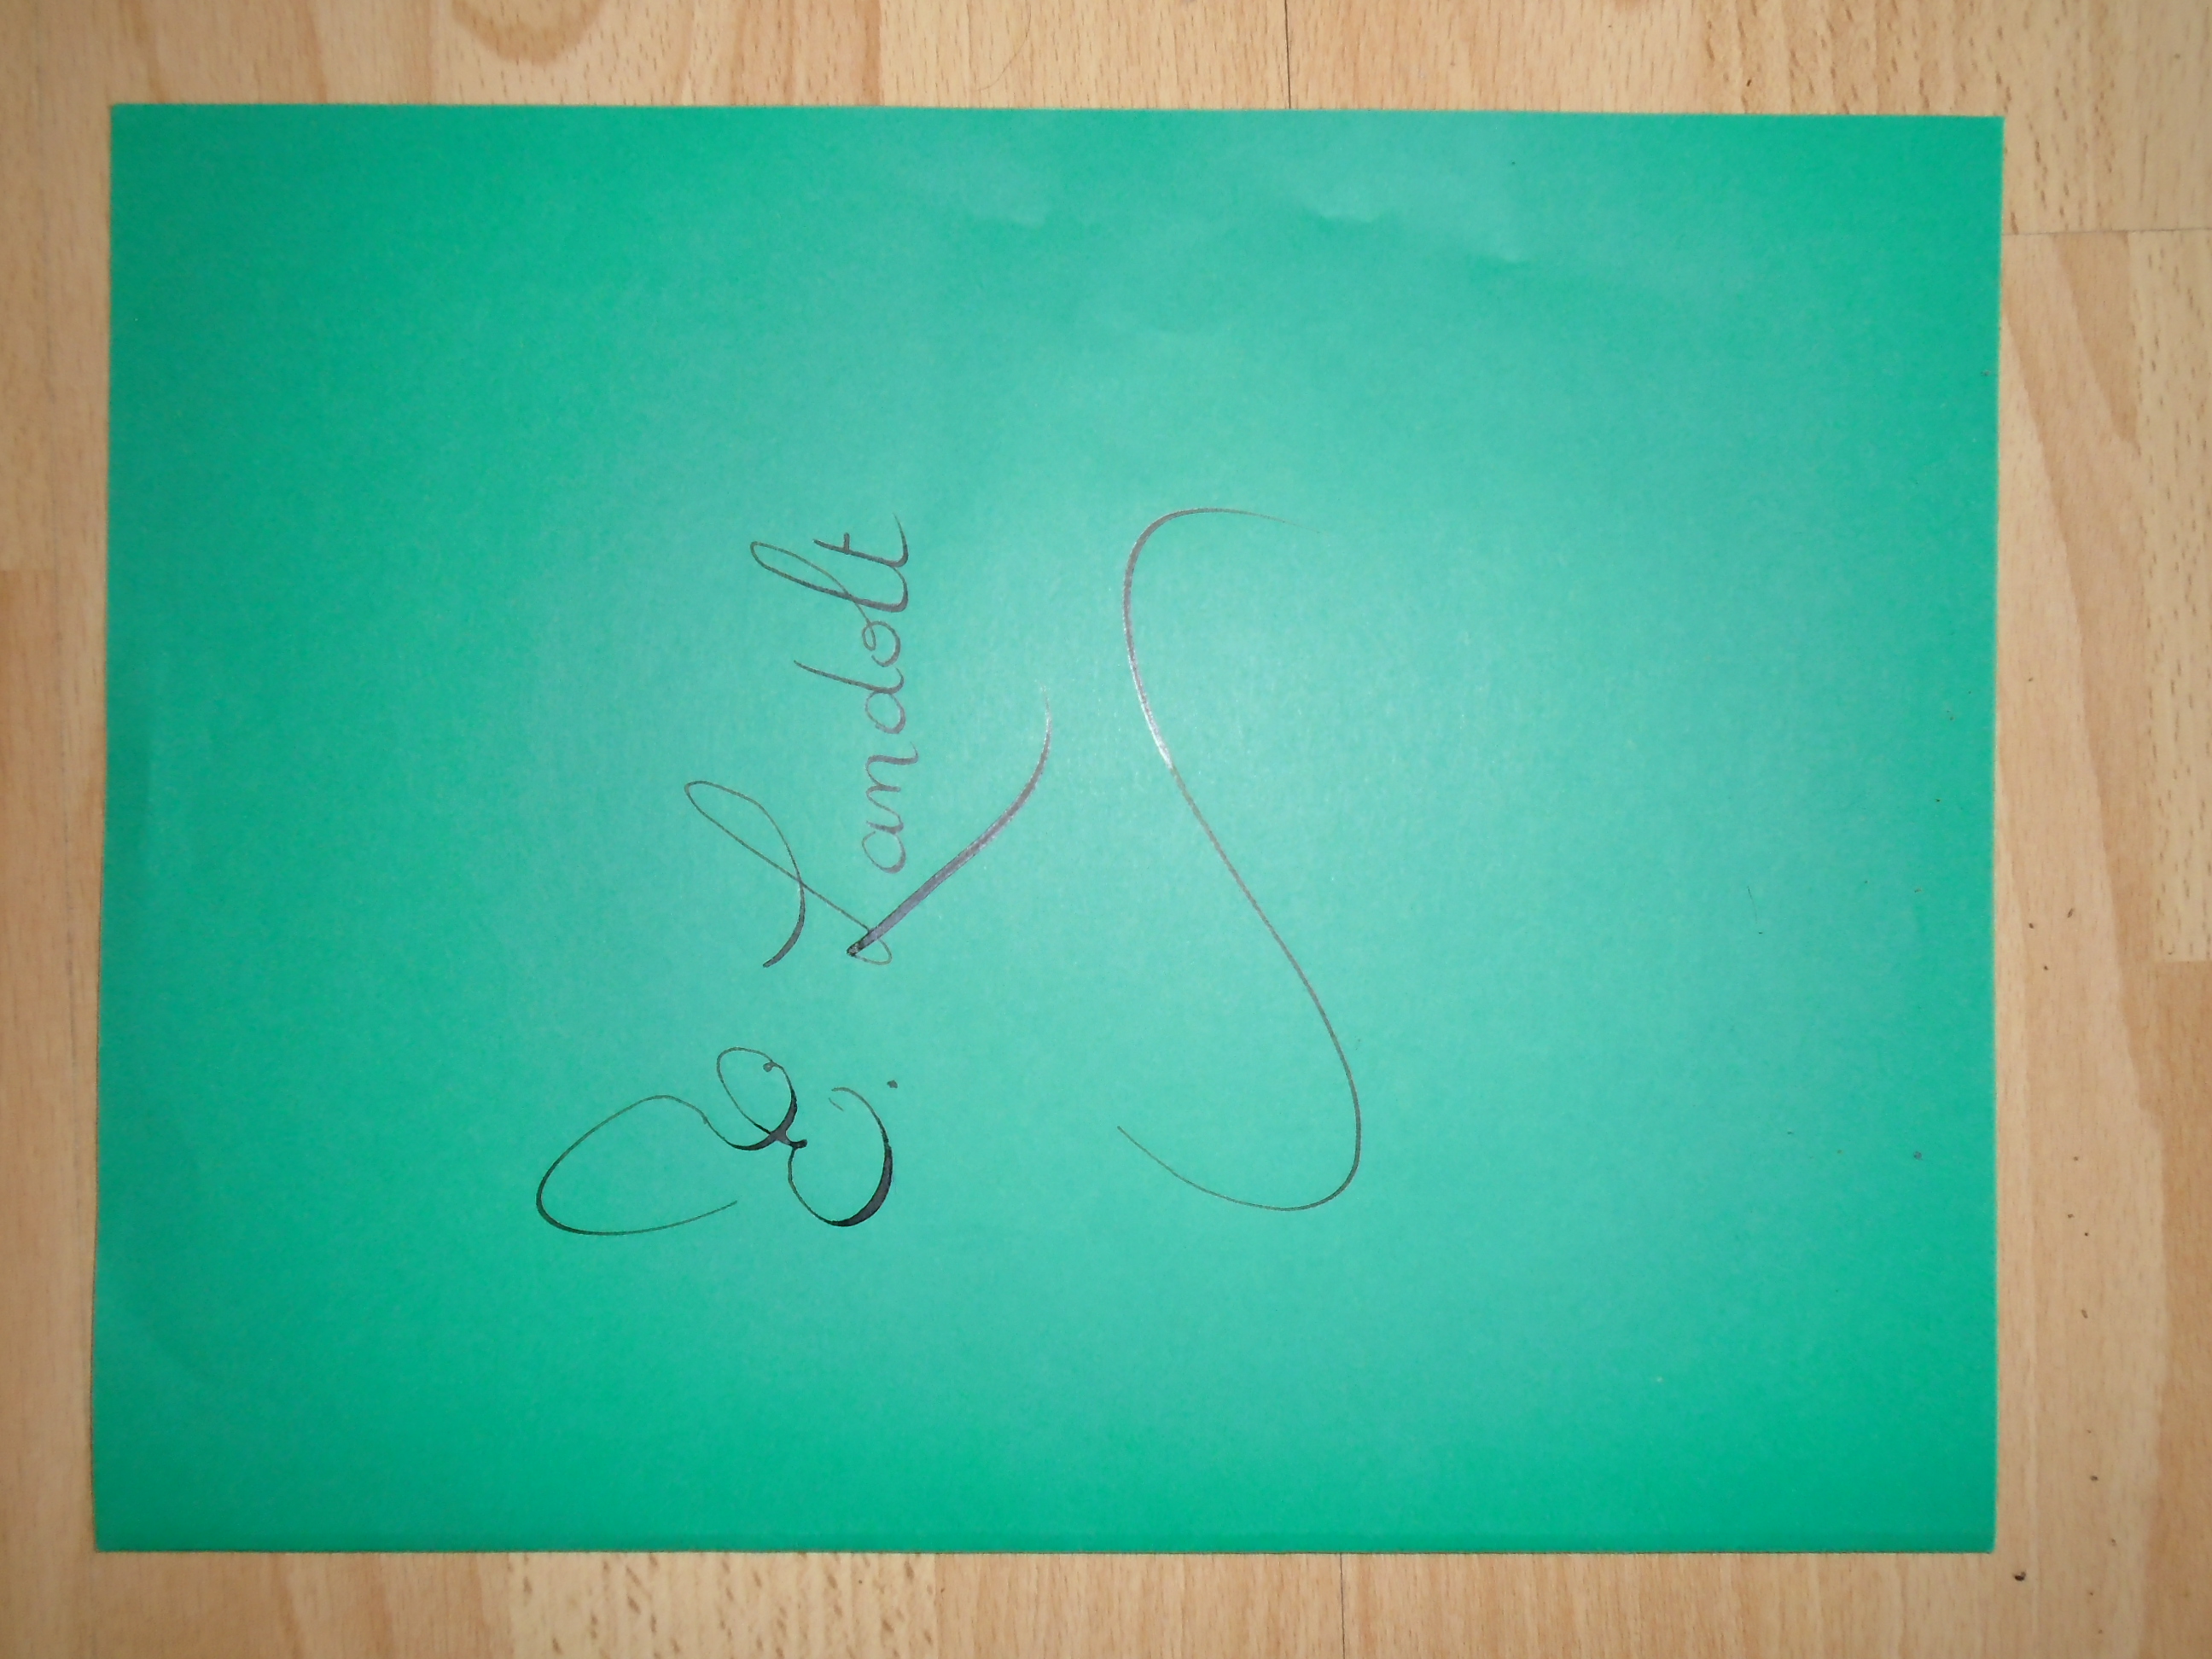 E. Landolt